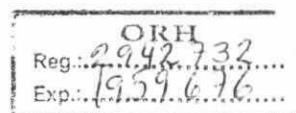 ORH
Reg.: 2942732
Exp.: 1959676